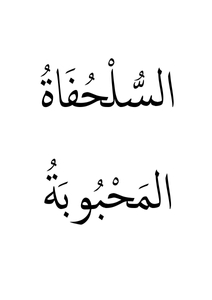 السُّلْحُفَاةُ
المَحْبُوبَةُ